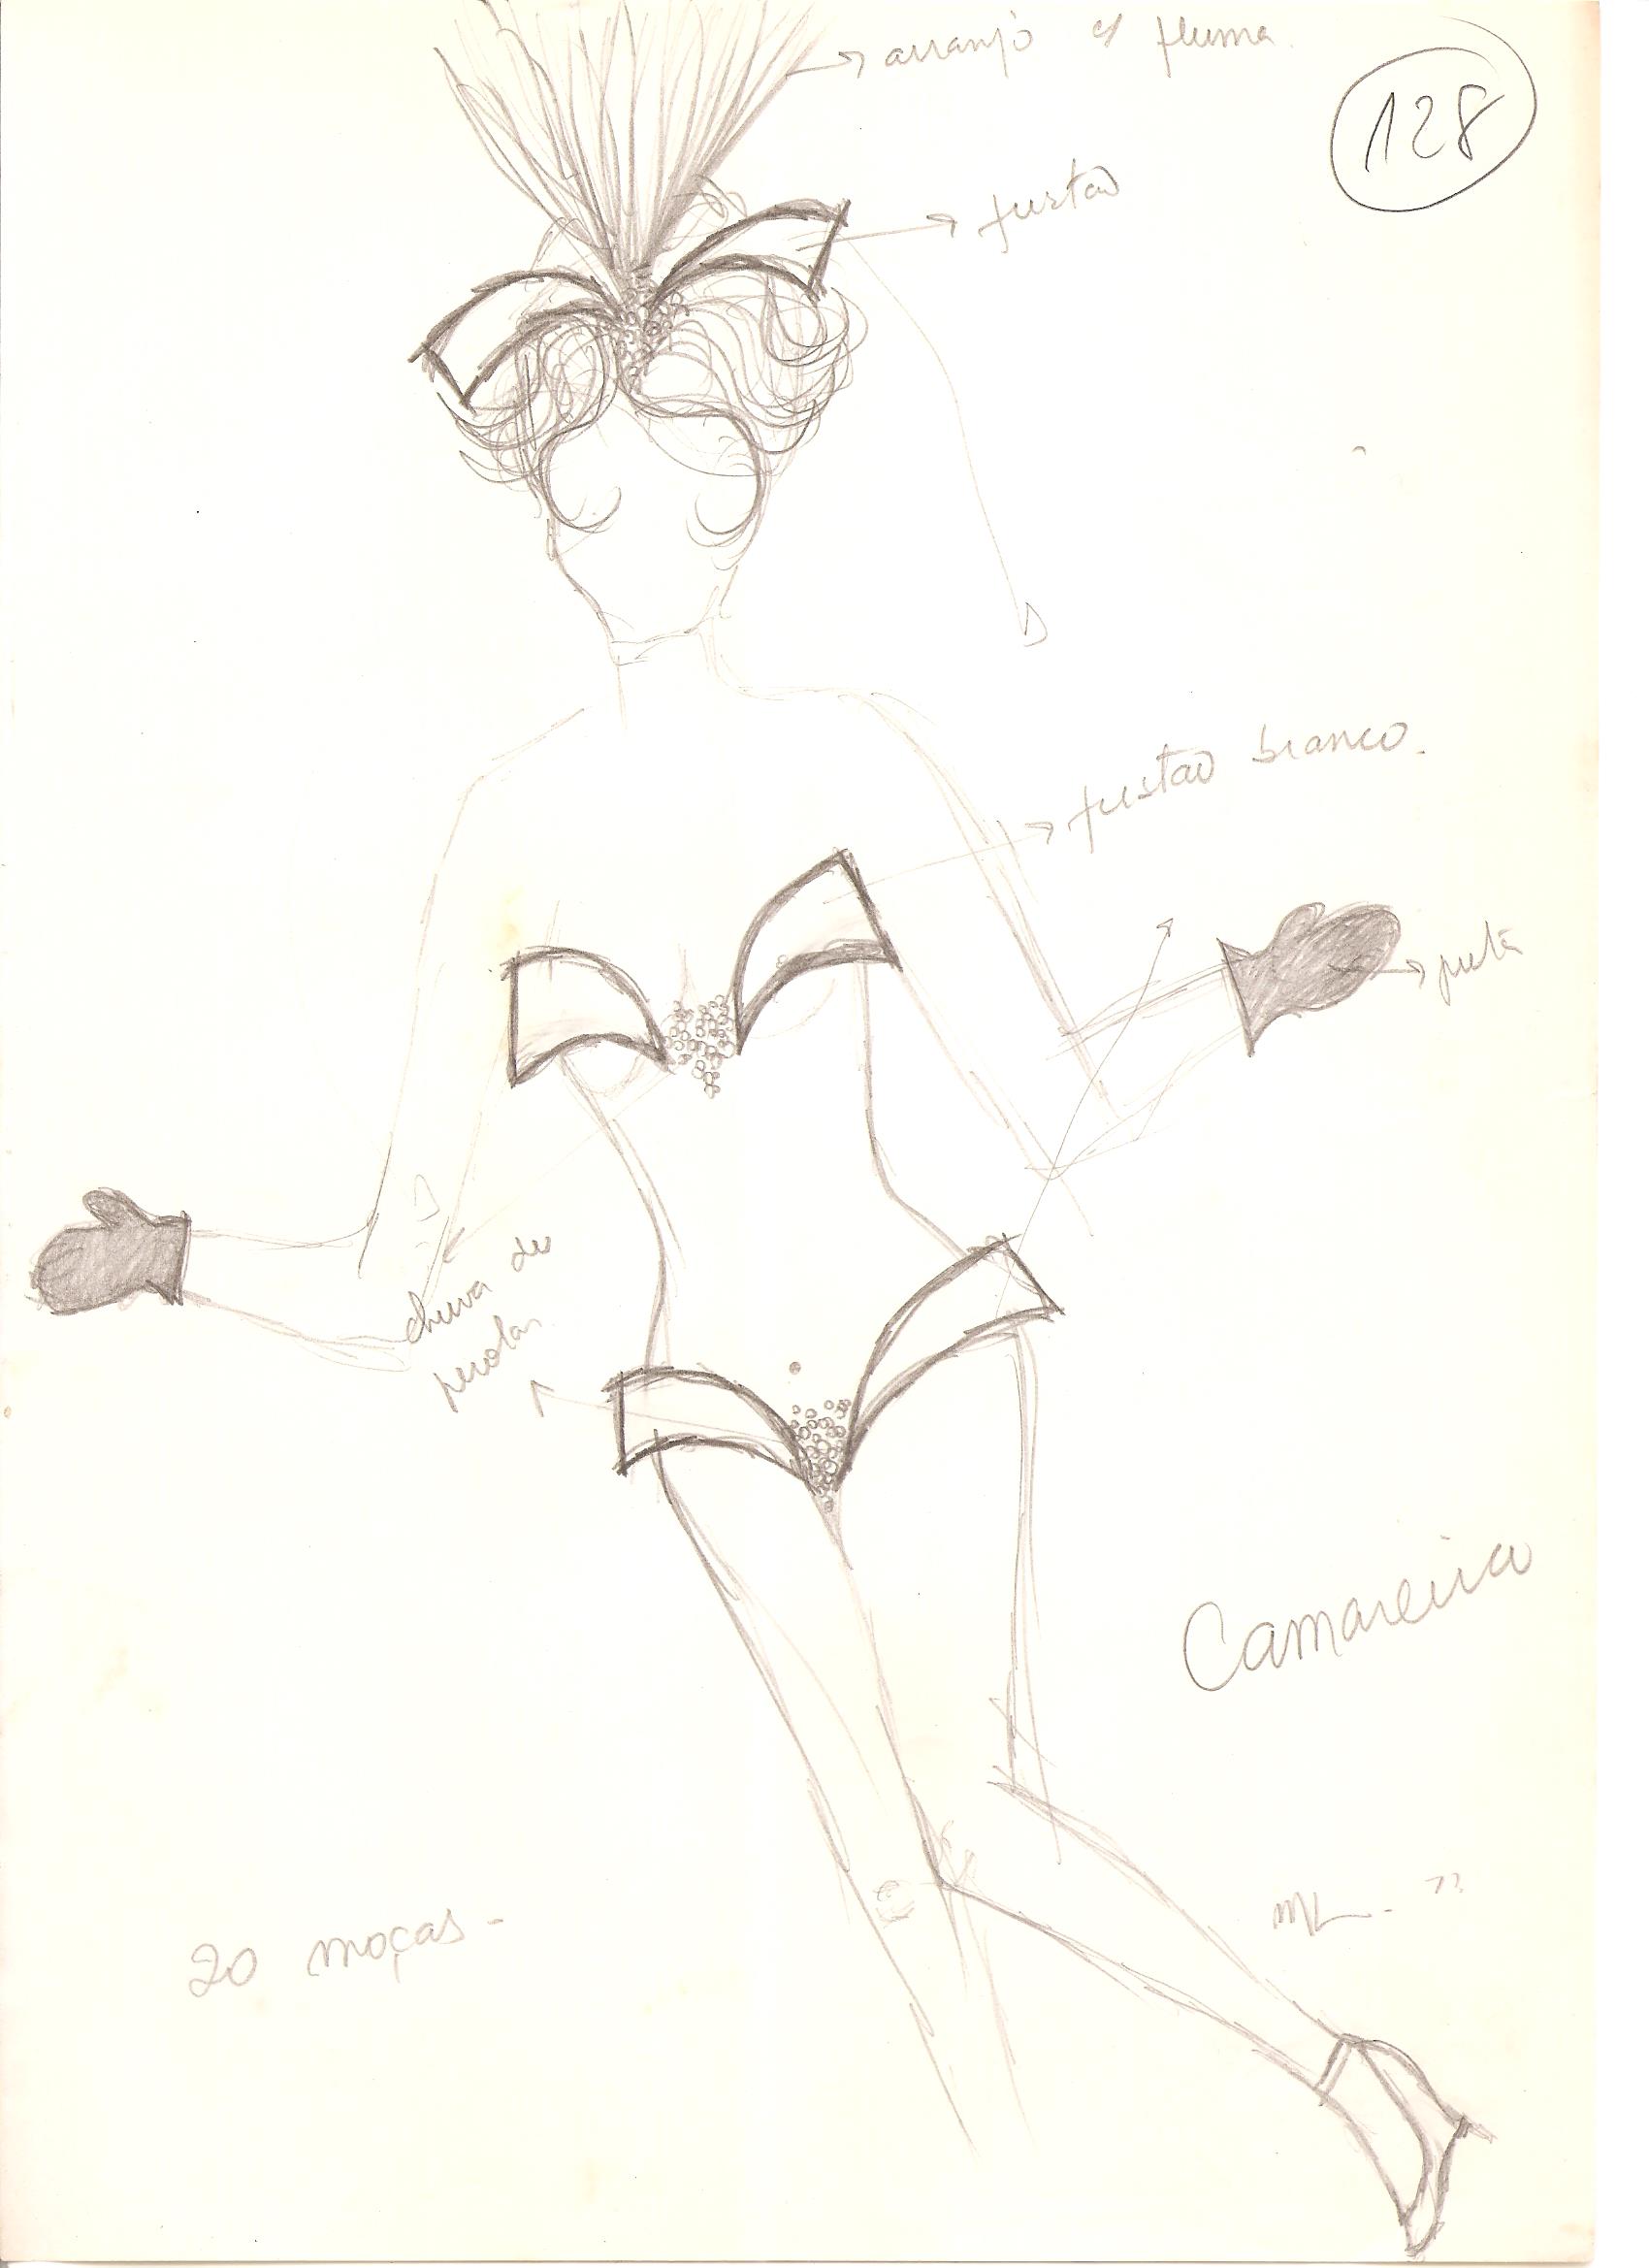 arranjo c/ pluma.
128
fustão
fustão branco.
preta
chuva de
perolas
Camareira
20 moças -